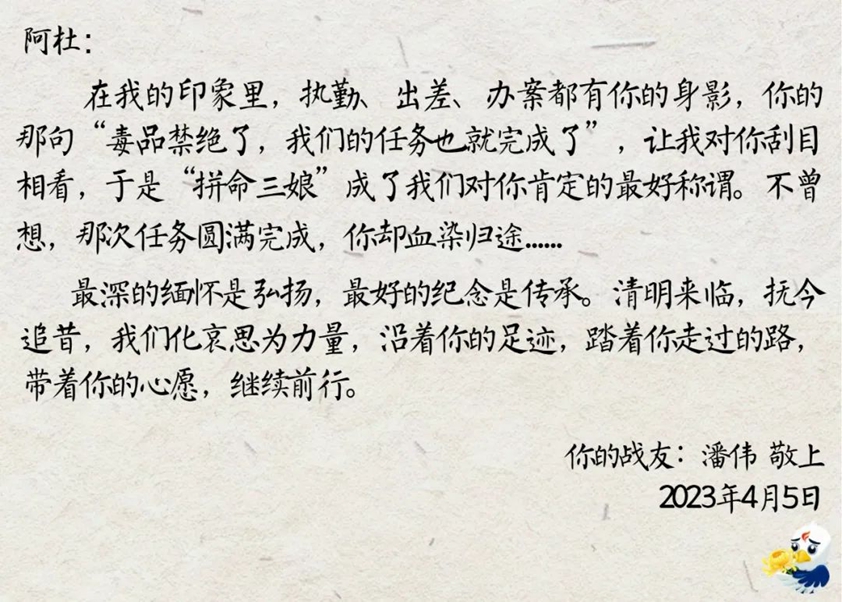 阿杜：
在我的印象里，执勤、出差、办案都有你的身影，你的
那句“毒品禁绝了，我们的任务也就完成了”，让我对你刮目
相看，于是“拼命三娘”成了我们对你肯定的最好称谓。不曾
想，那次任务圆满完成，你却血染归途……
最深的缅怀是弘扬，最好的纪念是传承。清明来临，抚今
追昔，我们化哀思为力量，沿着你的足迹，踏着你走过的路，
带着你的心愿，继续前行。
你的战友：潘伟 敬上
2023年4月5日